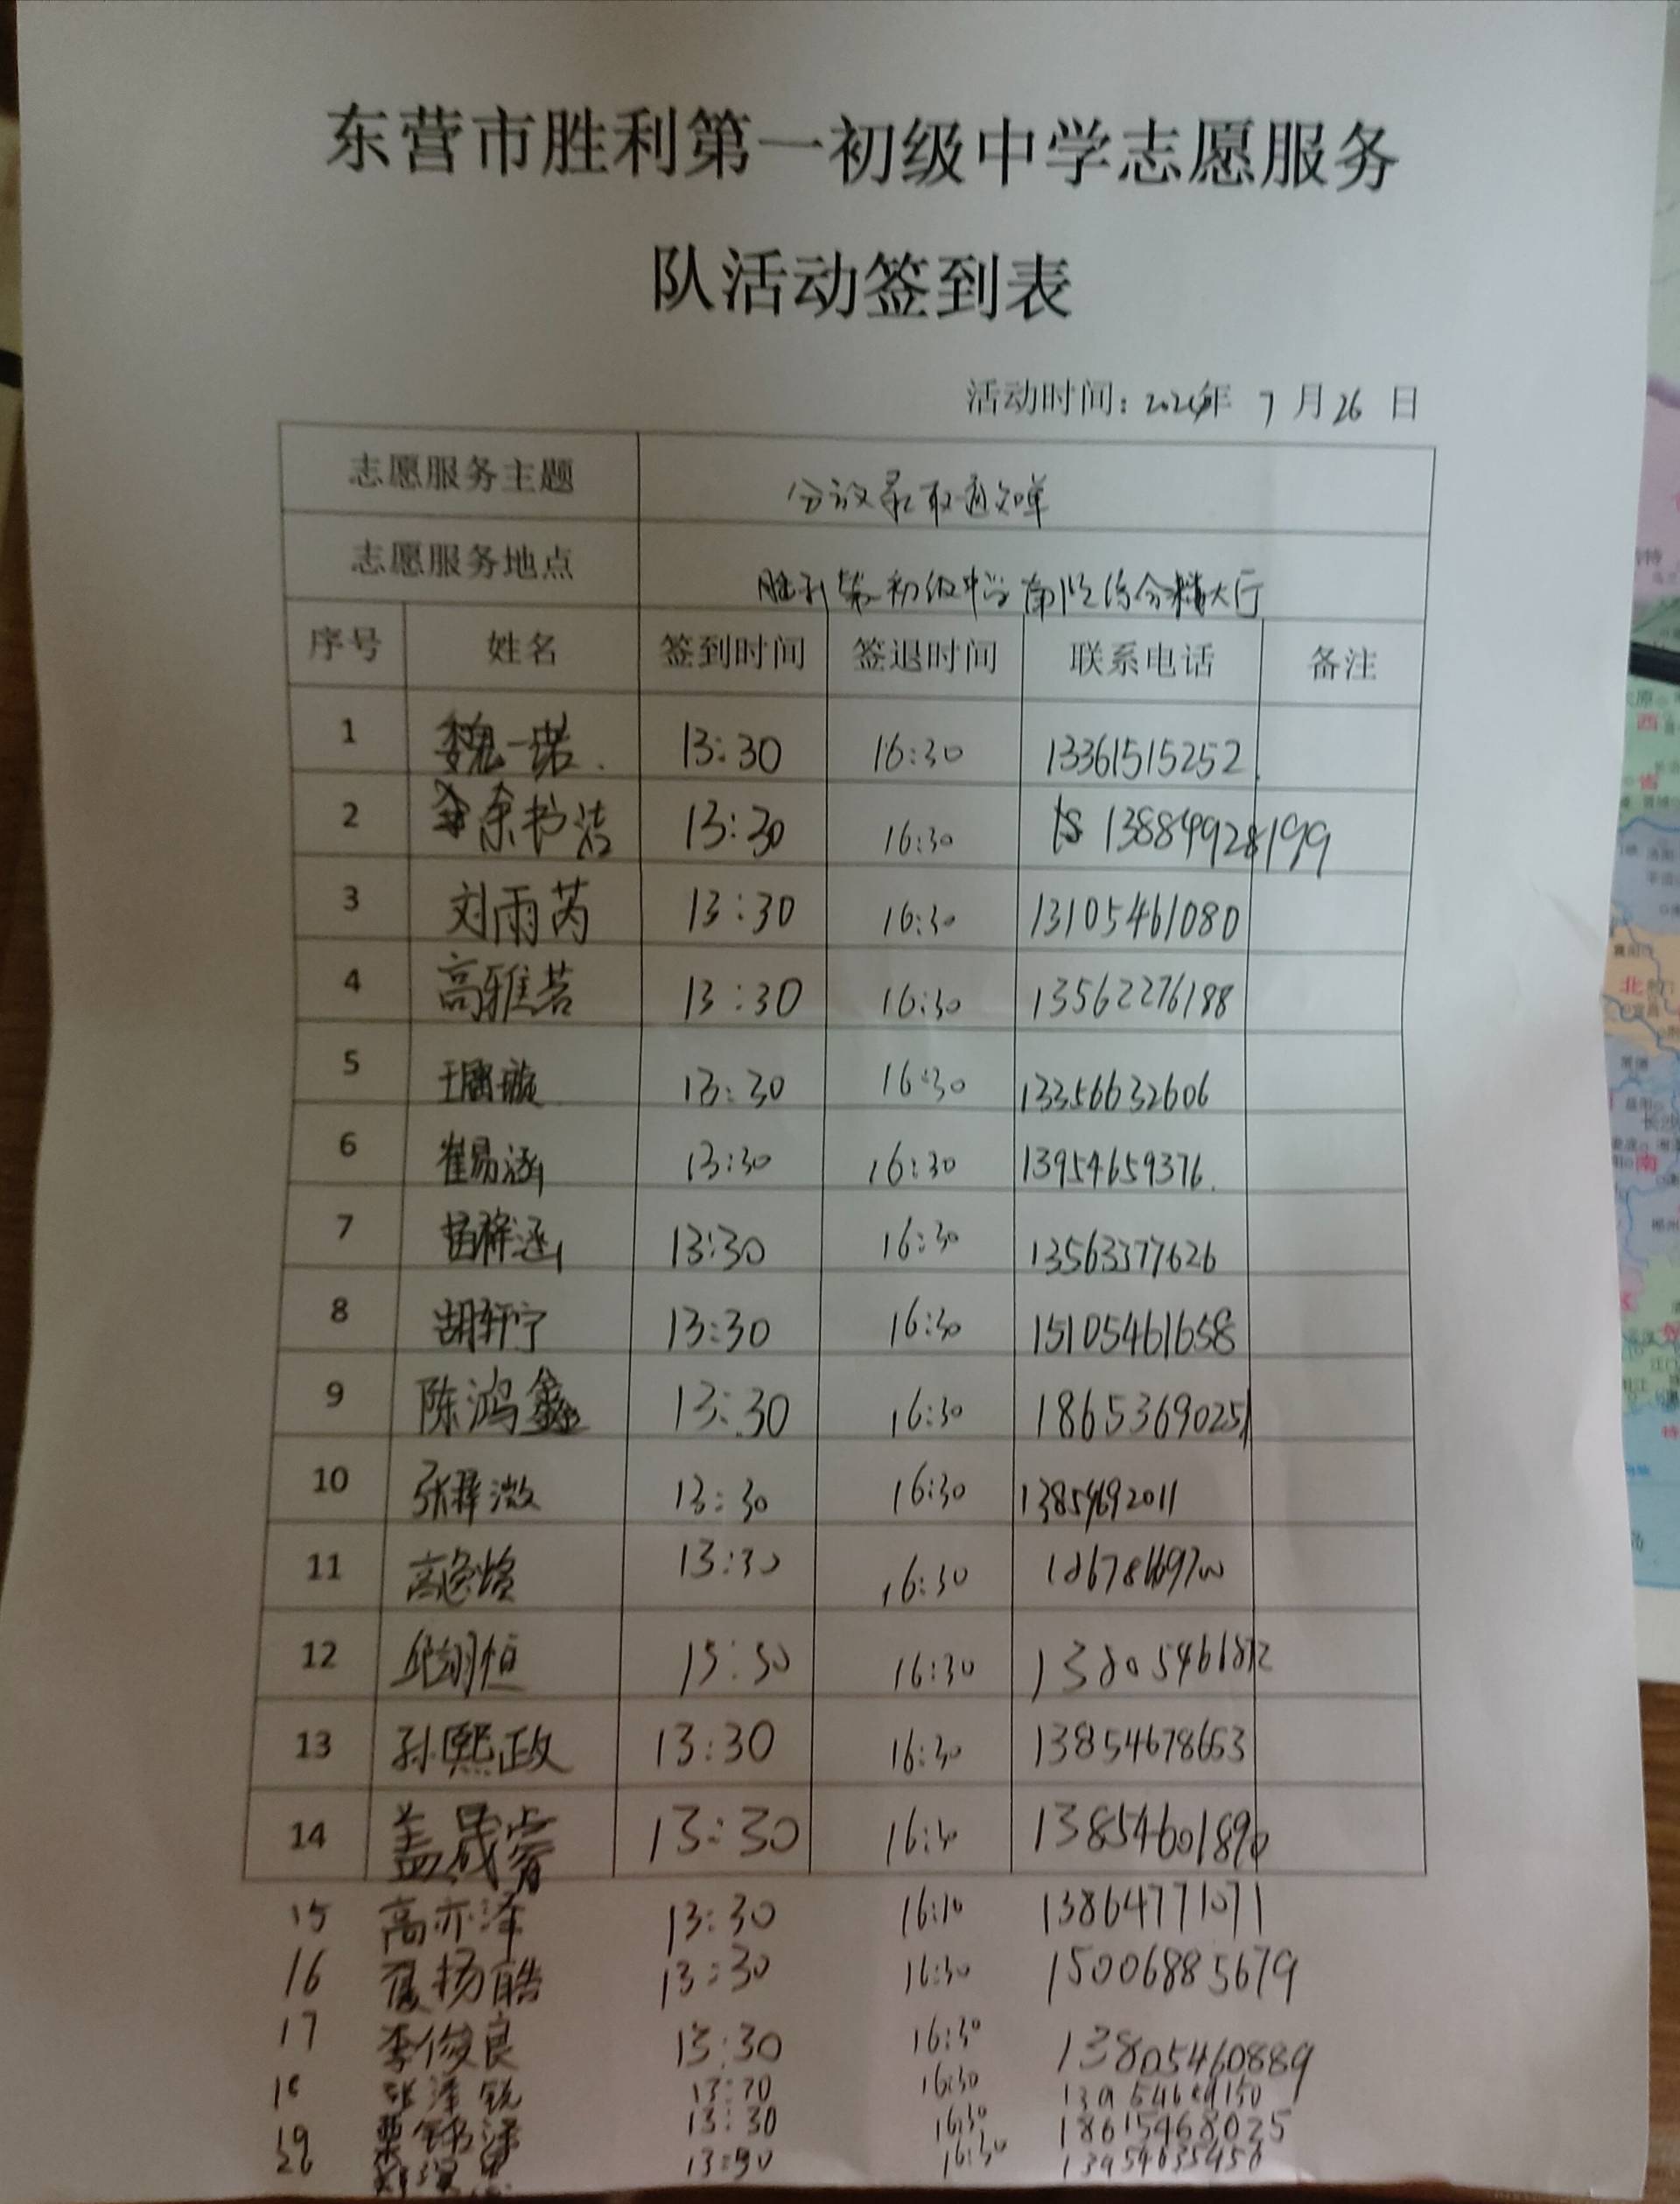 东营市胜利第一初级中学志愿服务
队活动签到表
活动时间：2024年 7 月 26 日
志愿服务主题 分放录取通知单
志愿服务地点 胜利第一初级中学南临综合楼大厅
序号 姓名 签到时间 签退时间 联系电话 备注
1 魏一诺 13:30 16:30 13361515252
2 余书洁 13:30 16:30 13884928199
3 刘雨芮 13:30 16:30 13105461080
4 高雅若 13:30 16:30 13562276188
5 13:30 16:30 13356632606
6 崔易涵 13:30 16:30 13954659376
7 苗梓涵 13:30 16:30 13563377626
8 胡轩宁 13:30 16:30 15105461658
9 陈鸿鑫 13:30 16:30 18653690251
10 张梓微 13:30 16:30 13854692011
11 13:30 16:30
12 邱翊恒 13:30 16:30
13 孙熙政 13:30 16:30 13854678653
14 盖晟睿 13:30 16:30 13854601890
15 高亦泽 13:30 16:10 13864771071
16 夏扬皓 13:30 16:30 15006885679
17 李俊良 13:30 16:30 13805460889
18 张泽锐 13:30 16:30
19 13:30 16:30 18615468025
20 16:30